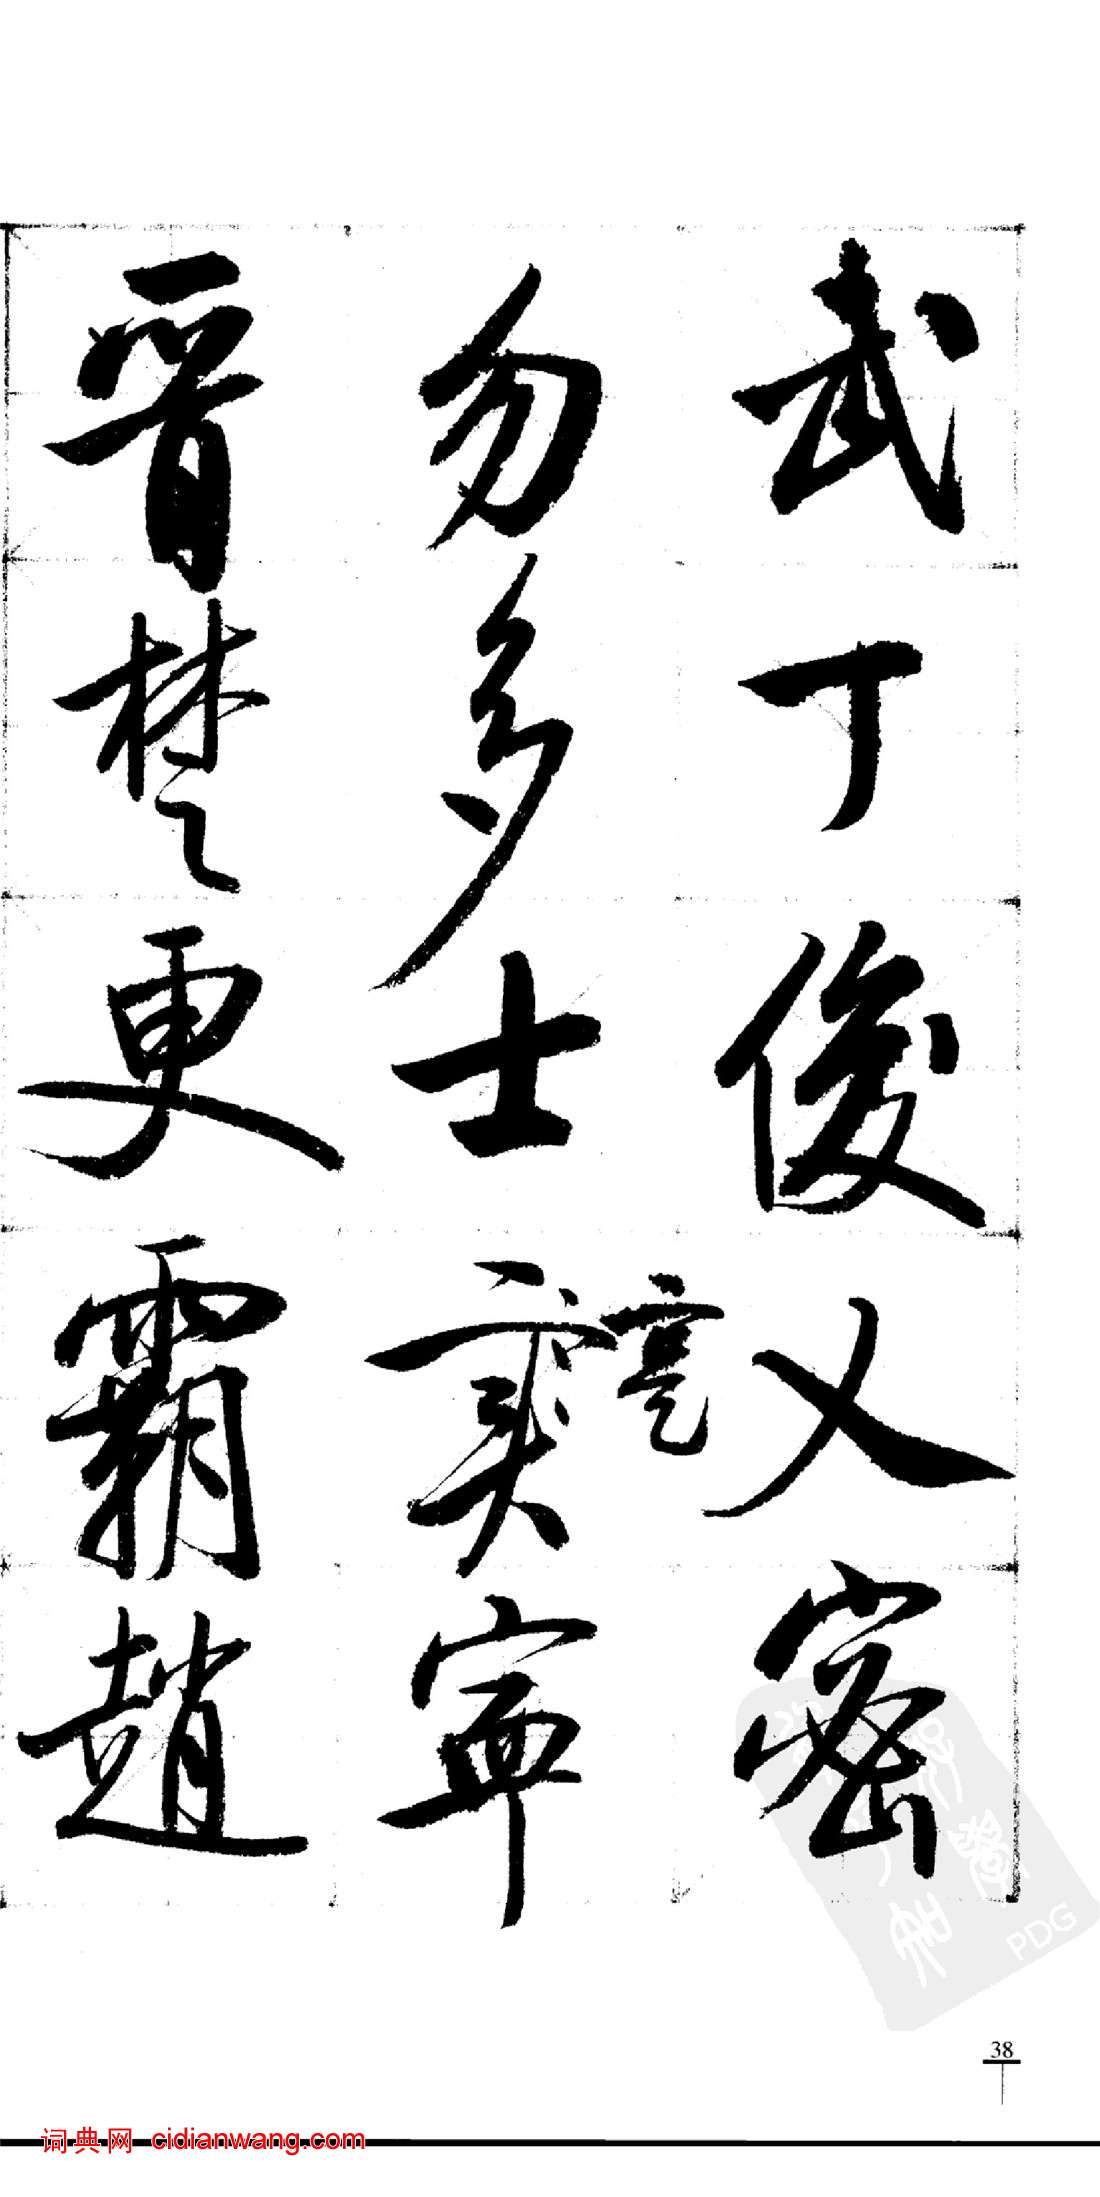 武丁俊乂密
勿多士寔寧
晉楚更霸趙
PDG
38
词典网 cidianwang.com